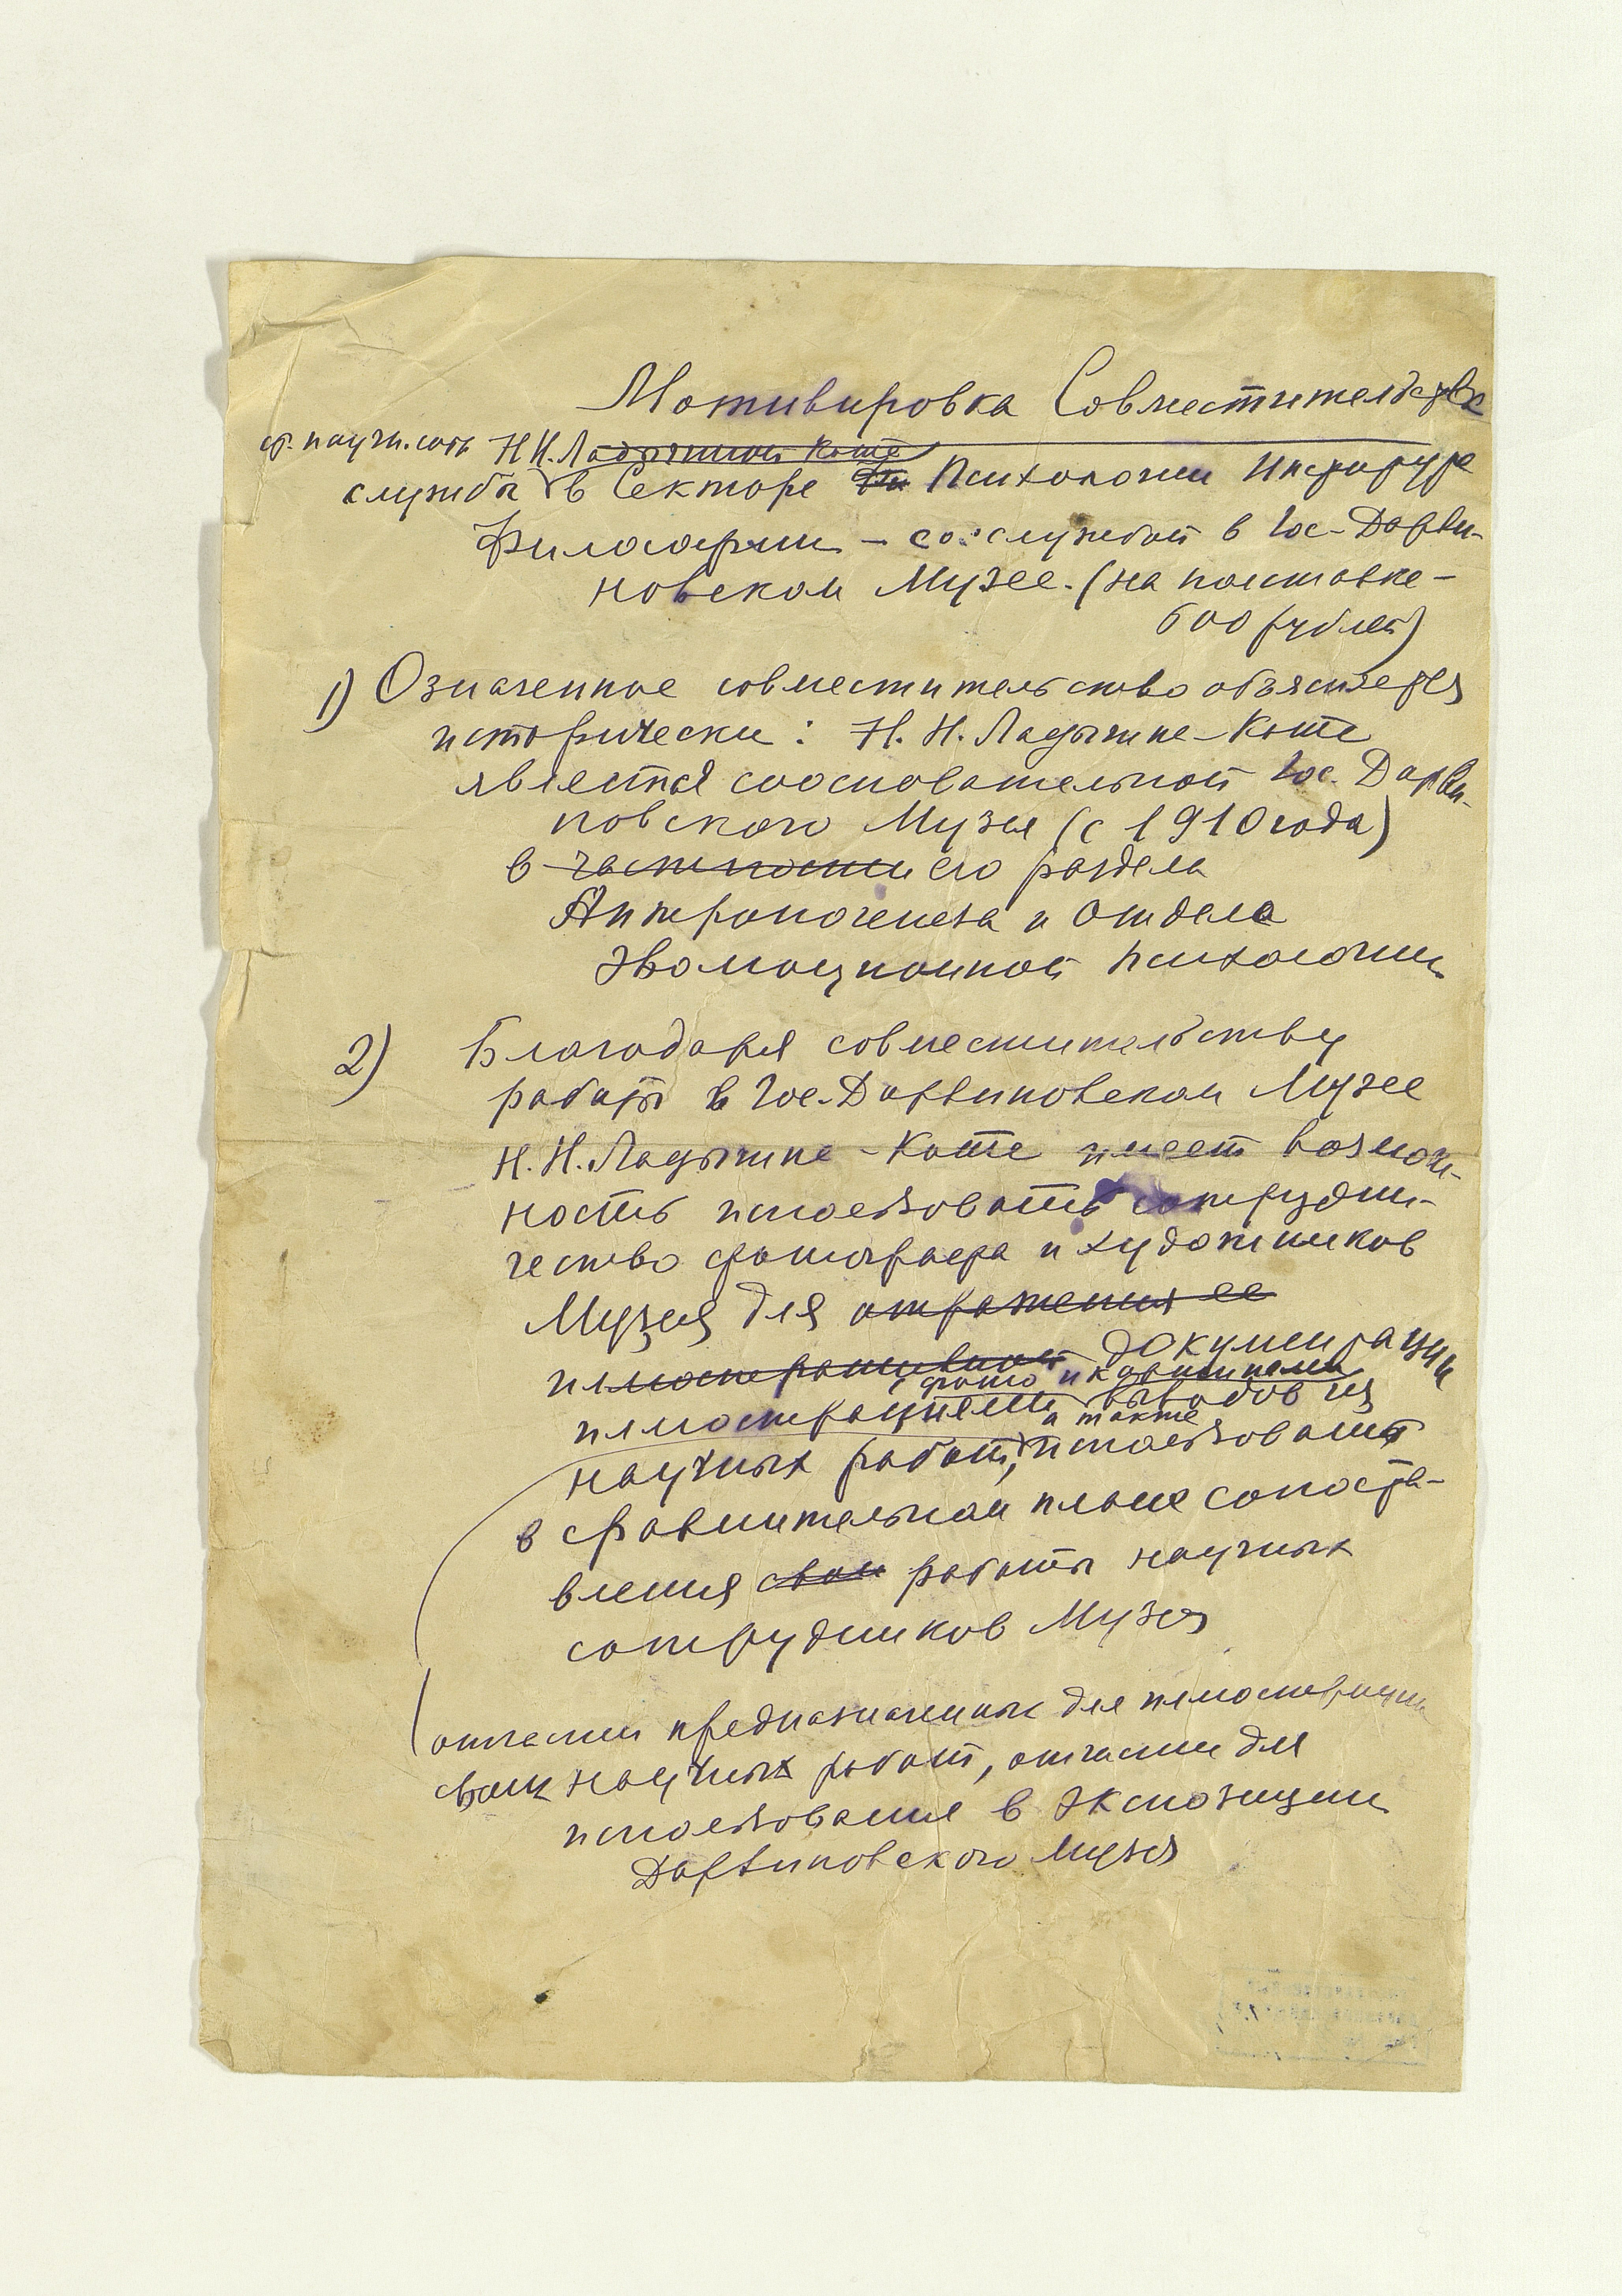 Мотивировка Совместительства
ст. научн. сотр. Н.Н. Ладыгиной Котс
службы в Секторе Психологии Института
Философии – со службой в Гос. Дарви-
новском Музее. (на полставке –
600 рублей)
1) Означенное совместительство объясняется
исторически: Н. Н. Ладыгина-Котс
является сооснователькой Гос. Дарви-
новского Музея (с 1910 года)
в частности его раздела
Антропогенеза и Отдела
Эволюционной психологии
2) Благодаря совместительству
работы в Гос. Дарвиновском Музее
Н. Н. Ладыгина-Котс имеет возмож-
ность использовать сотрудни-
чество фотографа и художников
Музея для отражения ее
иллюстративной документации
фото и картинами
иллюстрациями выводов из
а также
научных работ, использовать
в сравнительном плане сопоста-
вления свои работы научных
сотрудников Музея
отчасти предназначенных для иллюстрации
своих научных работ, отчасти для
использования в экспозиции
Дарвиновского Музея